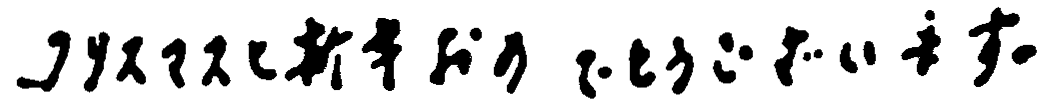 クリスマスと新年おめでとうございます